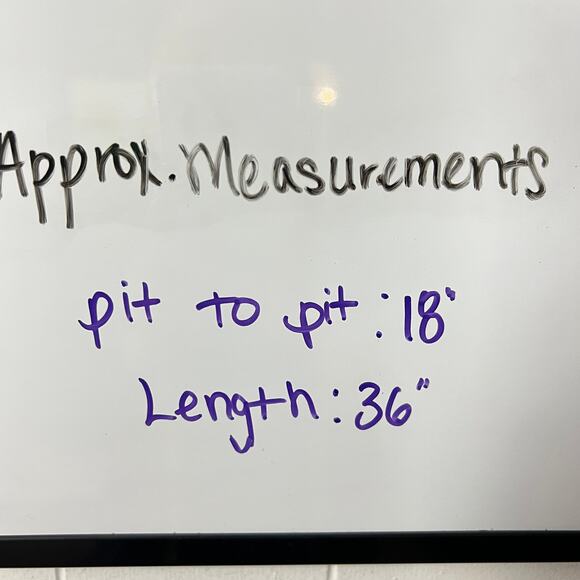 Approx. Measurements
pit to pit : 18"
Length : 36"